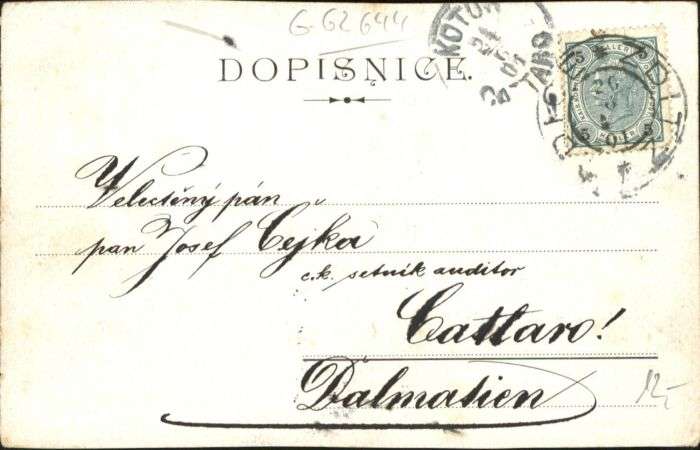 G-G2644
DOPISNICE.
KOTOR
5 HELLER 5
5 HELLER 5
Velectěný pán
pan Josef Čejka
c.k. setník auditor
Cattaro!
Dalmatien
12,-